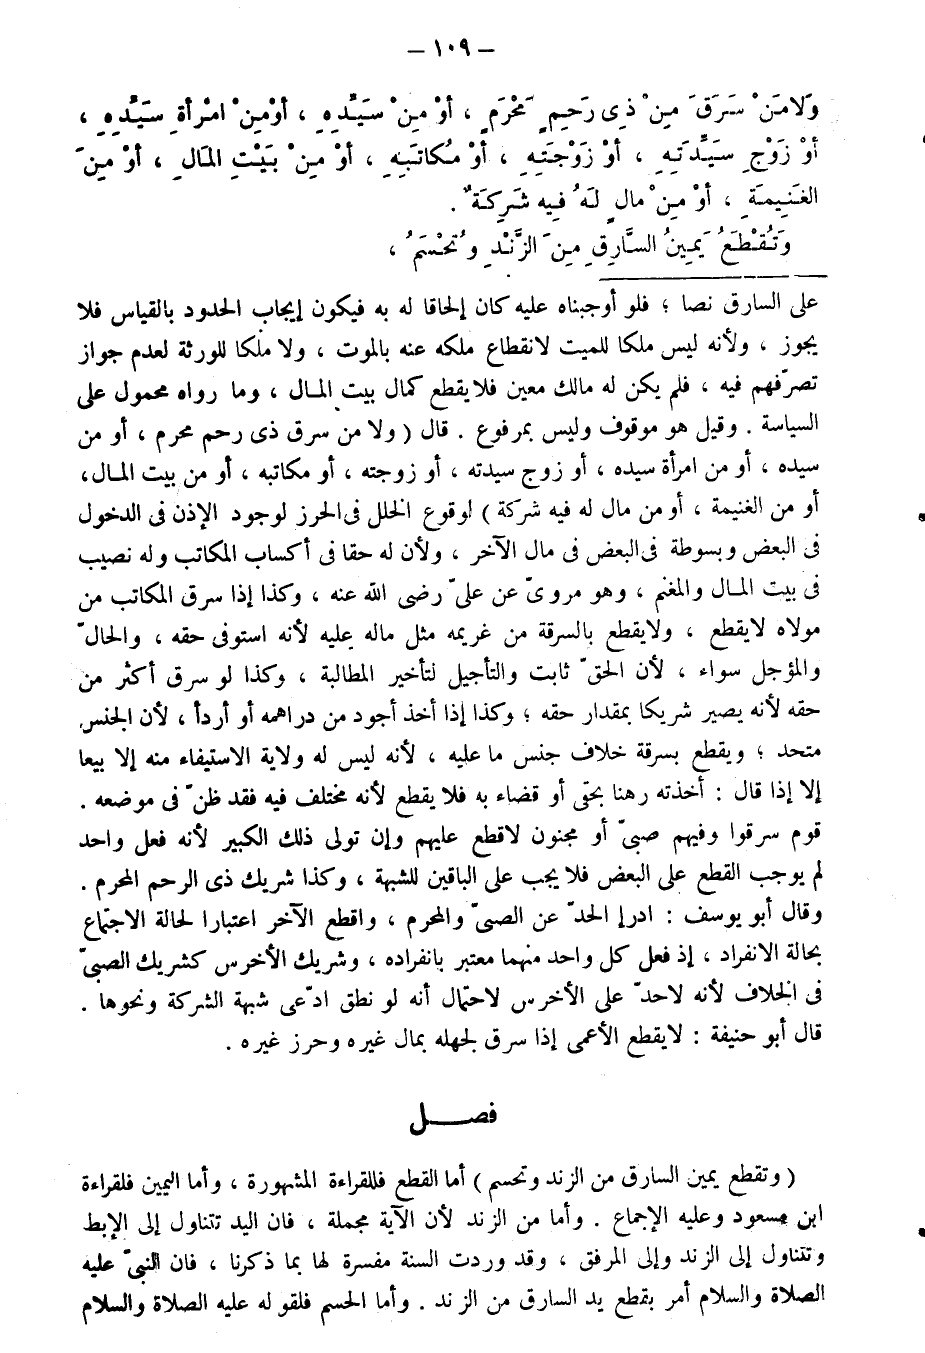 – ١٠٩ –
وَلا مَنْ سَرَقَ مِنْ ذِى رَحِمٍ مَحْرَمٍ ، أوْ مِنْ سَيِّدِهِ ، أوْمِنِ امْرأةِ سَيِّدِهِ ،
أوْ زَوْجِ سَيِّدَتِهِ ، أوْ زَوْجَتِهِ ، أوْ مُكاتَبِهِ ، أوْ مِنْ بَيْتِ المَالِ ، أو مِنَ
الغَنِيمَةِ ، أوْ مِنْ مالٍ لَهُ فِيهِ شَرِكَةٌ .
وَتُقْطَعُ يَمِينُ السَّارِقِ مِنَ الزَّنْدِ وتُحْسَمُ ،
على السارق نصا ؛ فلو أوجبناه عليه كان إلحاقا له به فيكون إيجاب الحدود بالقياس فلا
يجوز ، ولأنه ليس ملكا للميت لانقطاع ملكه عنه بالموت ، ولا ملكا للورثة لعدم جواز
تصرّفهم فيه ، فلم يكن له مالك معين فلا يقطع كمال بيت المـال ، وما رواه محمول على
السياسة . وقيل هو موقوف وليس بمرفوع . قال ( ولا من سرق ذى رحم محرم ، أو من
سيده ، أو من امرأة سيده ، أو زوج سيدته ، أو زوجته ، أو مكاتبه ، أو من بيت المـال،
أو من الغنيمة ، أو من مال له فيه شركة ) لوقوع الخلل فى الحرز لوجود الإذن فى الدخول
فى البعض وبسوطة فى البعض فى مال الآخر ، ولأن له حقا فى أكساب المكاتب وله نصيب
فى بيت المـال والمغنم ، وهو مروىّ عن علىّ رضى الله عنه ، وكذا إذا سرق المكاتب من
مولاه لايقطع ، ولايقطع بالسرقة من غريمه مثل ماله عليه لأنه استوفى حقه ، والحالّ
والمؤجل سواء ، لأن الحقّ ثابت والتأجيل لتأخير المطالبة ، وكذا لو سرق أكثر من
حقه لأنه يصير شريكا بمقدار حقه ؛ وكذا إذا أخذ أجود من دراهمه أو أردأ ، لأن الجنس
متحد ؛ ويقطع بسرقة خلاف جنس ما عليه ، لأنه ليس له ولاية الاستيفاء منه إلا بيعا
إلا إذا قال : أخذته رهنا بحقى أو قضاء به فلا يقطع لأنه مختلف فيه فقد ظنّ فى موضعه .
قوم سرقوا وفيهم صبىّ أو مجنون لاقطع عليهم وإن تولى ذلك الكبير لأنه فعل واحد
لم يوجب القطع على البعض فلا يجب على الباقين للشبهة ، وكذا شريك ذى الرحم المحرم .
وقال أبو يوسف : ادرإ الحدّ عن الصبىّ والمحرم ، واقطع الآخر اعتبارا لحالة الاجتماع
بحالة الانفراد ، إذ فعل كل واحد منهما معتبر بانفراده ، وشريك الأخرس كشريك الصبىّ
فى الخلاف لأنه لاحدّ على الأخرس لاحتمال أنه لو نطق ادّعى شبهة الشركة ونحوها .
قال أبو حنيفة : لايقطع الأعمى إذا سرق لجهله بمال غيره وحرز غيره .
فصـــل
( وتقطع يمين السارق من الزند وتحسم ) أما القطع فللقراءة المشهورة ، وأما اليمين فلقراءة
ابن مسعود وعليه الإجماع . وأما من الزند لأن الآية مجملة ، فان اليد تتناول إلى الإبط
وتتناول إلى الزند وإلى المرفق ، وقد وردت السنة مفسرة لها بما ذكرنا ، فان النبىّ عليه
الصلاة والسلام أمر بقطع يد السارق من الزند . وأما الحسم فلقوله عليه الصلاة والسلام